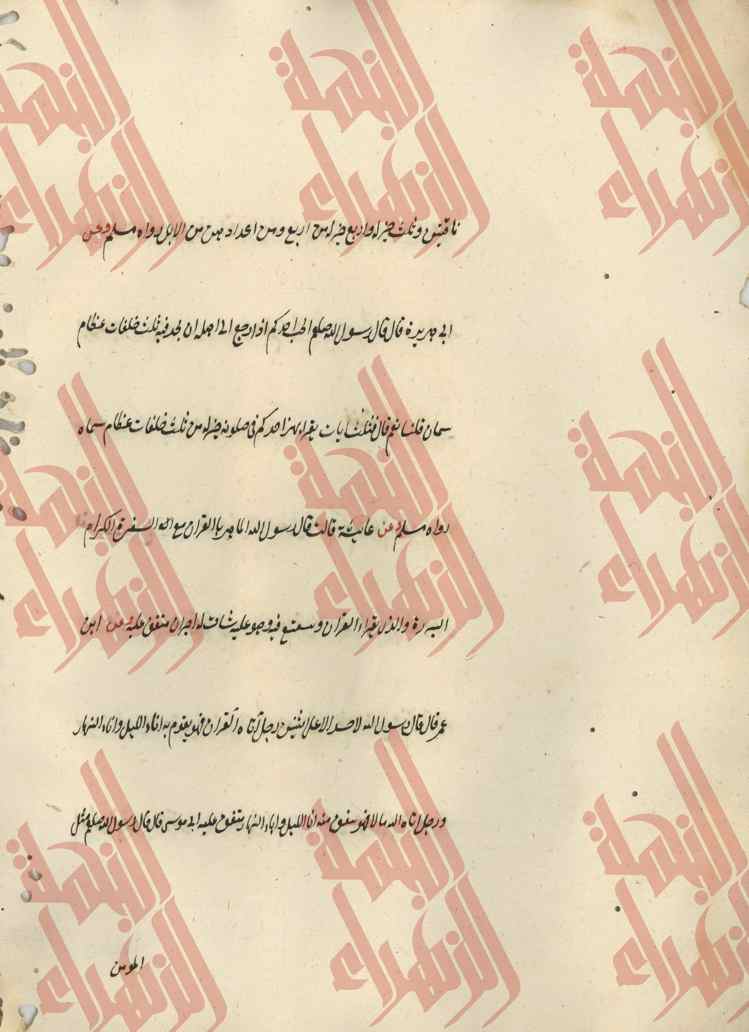 ناقتين وثلث خير له واربع خير له من اربع ومن اعدادهن من الابل رواه مسلم وعن
ابي هريرة قال قال رسول الله صلعم ايحب احدكم اذا رجع الى اهله ان يجد فيه ثلث خلفات عظام
سمان قلنا نعم قال فثلث ايات يقرا بهن احدكم في صلوته خير له من ثلث خلفات عظام سمان
رواه مسلم عن عايشة قالت قال رسول الله الماهر بالقران مع السفرة الكرام
البررة والذي يقراء القران ويتتعتع فيه وهو عليه شاق له اجران متفق عليه عن ابن
عمر قال قال رسول الله لا حسد الا على اثنين رجل اتاه القران فهو يقوم به اناء الليل واناء النهار
ورجل اتاه الله مالا فهو ينفق منه انا الليل واناء النهار متفق عليه ابي موسى قال قال رسول الله صلعم مثل
المومن